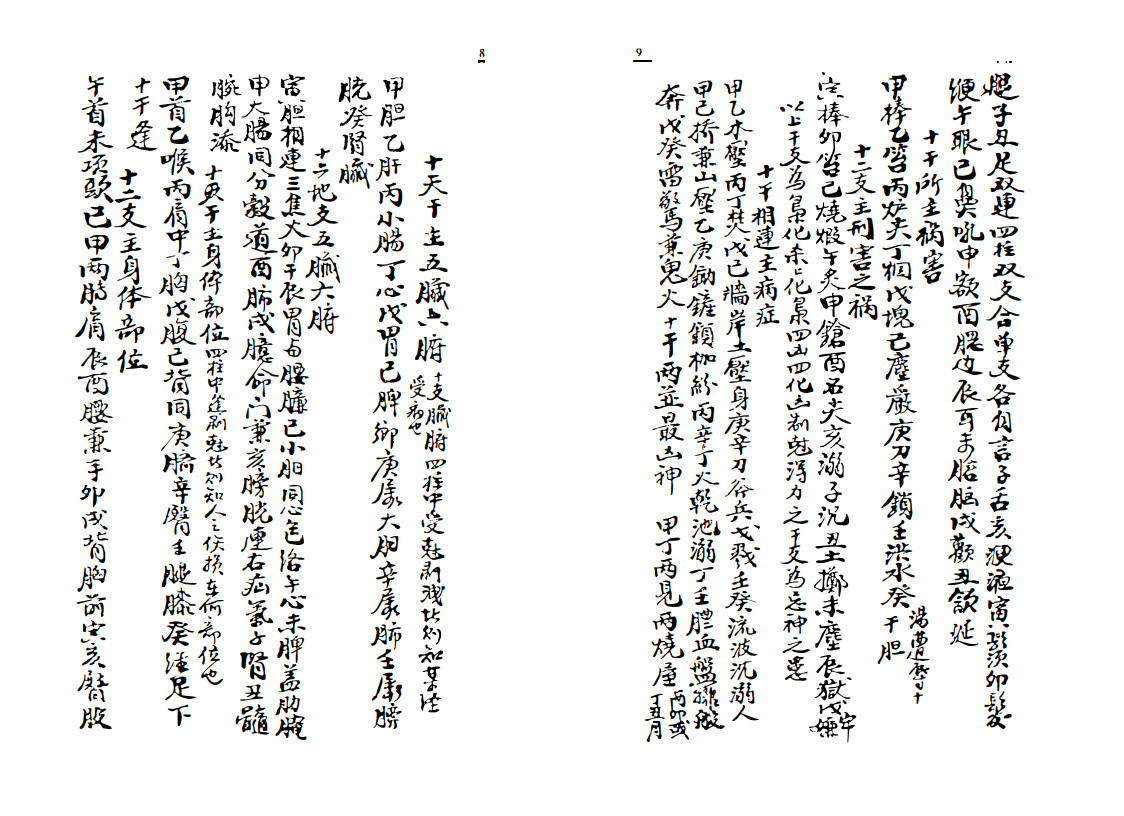 8
十天干主五臟六腑 十支臟腑四柱中受尅制残者则知某
受病也
甲胆乙肝丙小腸丁心戊胃己脾鄉庚属大胆辛属肺壬属膀
胱癸腎臟
十二地支五臟六腑
寅胆相連三焦火卯干辰胃與腰膧巳小胆同包络午心未脾盖肋腕
申大腸同分穀道酉肺戌臆命门兼亥膀胱連右疝氣子腎丑髓
腕胸添
十天干主身体部位 四柱中逢刑尅者则知人之伤损在何部位也
甲首乙喉丙肩中丁胸戊腹己背同庚臍辛臀壬腿膝癸足下
十干逢 十二支主身体部位
午首未項頭巳甲兩時肩辰酉腰兼手卯戌背胸前寅亥臂股
9
腿子丑足双連四柱双支合单支各自言子舌亥溲溺寅鬚須卯髮
便午眼巳鼻吼申额酉腮边辰耳脑戌颧丑颔延
十干所主祸害
甲棒乙笞丙炉夫丁烟戊塊己塵巖庚刀辛鎖壬洪水癸 湯
十干胆
十二支主刑害之祸
寅棒卯笞巳燒煅午炙申鎗酉石尖亥溺子沉丑土擲未塵辰獄戌牢
嫌
以上干支為梟化未上化梟四凶四化凶制尅得力之干支為忌神之患
十干相連主病症
甲乙木壓丙丁焚戊己墻岸土壓身庚辛刀谷兵戈戮壬癸流波沉溺人
甲己挢兼山壓乙庚鋤鏟鎖枷紛丙辛丁火乾池溺丁壬膿血盤
奔戊癸雷驚兼鬼火 十干两並最凶神 甲丁两見两燒屋 丙卯或
丁丑月